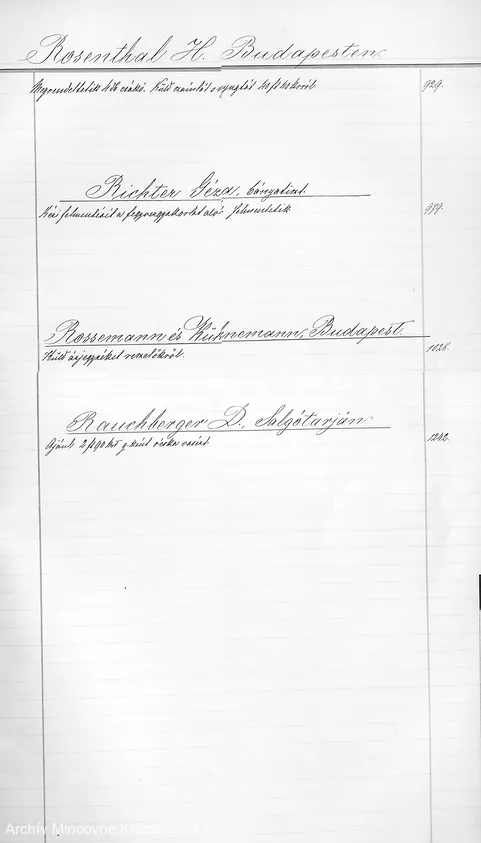 Rosenthal H. Budapesten.
Megrendeltetik 4 db csákó. Küld számlát s nyugtát 40 ft 40 krról. 929.
Richter Géza, bányatiszt.
Kéri felmentését a fegyvergyakorlat alól. Felmentetik 979.
Rossemann és Kühnemann, Budapest.
Küld árjegyzéket emelőkről. 1026.
Rauchberger D., Salgótarján.
Ajánl 2 ft 90 krt q-ként ócska vasért. 1242.
Archív Mincovne Kremnica